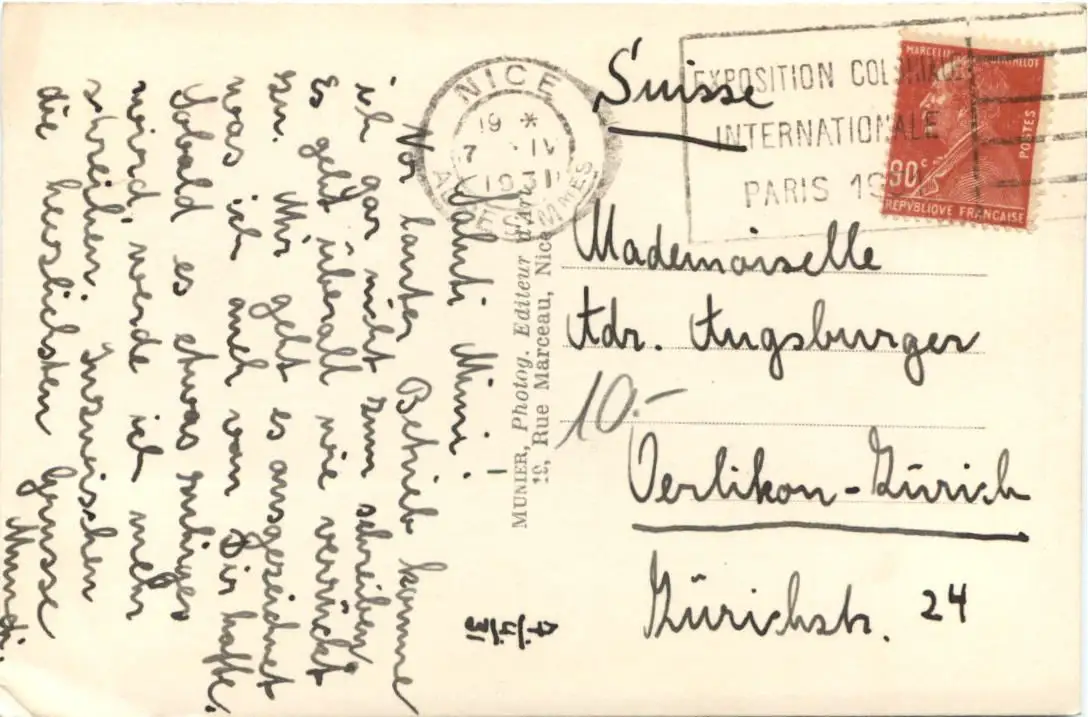 7/4/31
Saluti Mimi!
Vor lauter Betrieb komme
ich gar nicht zum schreiben,
Es geht überall wie verrückt
zu. Mir geht es ausgezeichnet
was ich auch von Dir hoffe.
Sobald es etwas ruhiges
wird, werde ich mehr
schreiben. Inzwischen
die herzlichsten Grüsse
Mundi.
MUNIER, Photog. Editeur d'Art
19, Rue Marceau, Nice
NICE
19 *
7 IV
1931
MMES
EXPOSITION COLONIALE
INTERNATIONALE
PARIS
MARCELIN
POSTES
90c
REPVBLIQUE FRANCAISE
Suisse
Mademoiselle
Adr. Augsburger
10.-
Oerlikon-Zürich
Zürichstr. 24